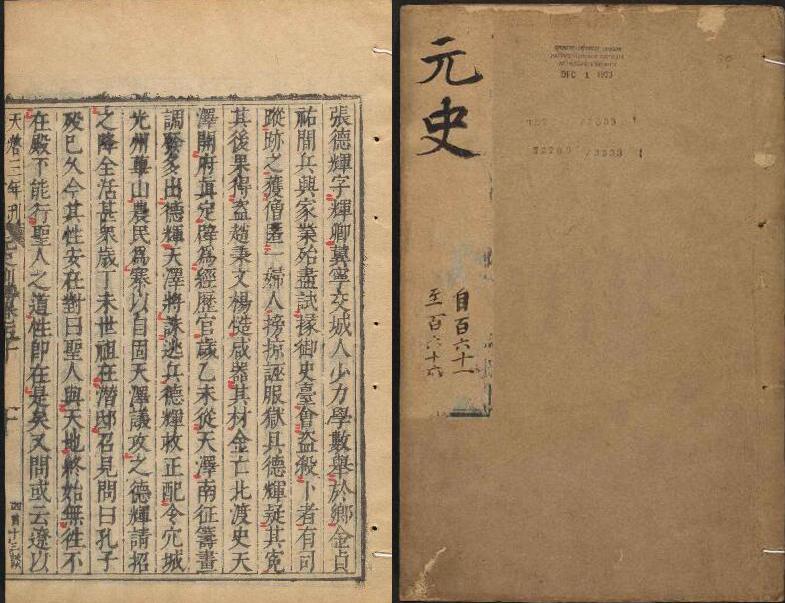 張德輝字輝卿冀寧交城人少力學數舉於鄉金貞
祐間兵興家業殆盡試掾御史臺會盜殺卜者有司
蹤跡之獲僧匿一婦人搒掠誣服獄具德輝疑其冤
其後果得盜趙秉文楊慥咸器其材金亡北渡史天
澤開府眞定辟爲經歷官歲乙未從天澤南征籌畫
調發多出德輝天澤將誅逃兵德輝救正配令穴城
光州華山農民爲寨以自固天澤議攻之德輝請招
之降全活甚衆歲丁未世祖在潛邸召見問曰孔子
歿已久今其性安在對曰聖人與天地終始無徃不
在殿下能行聖人之道性即在是矣又問或云遼以
三年刊
元史
自百六十一
至百六十六
DEC 1